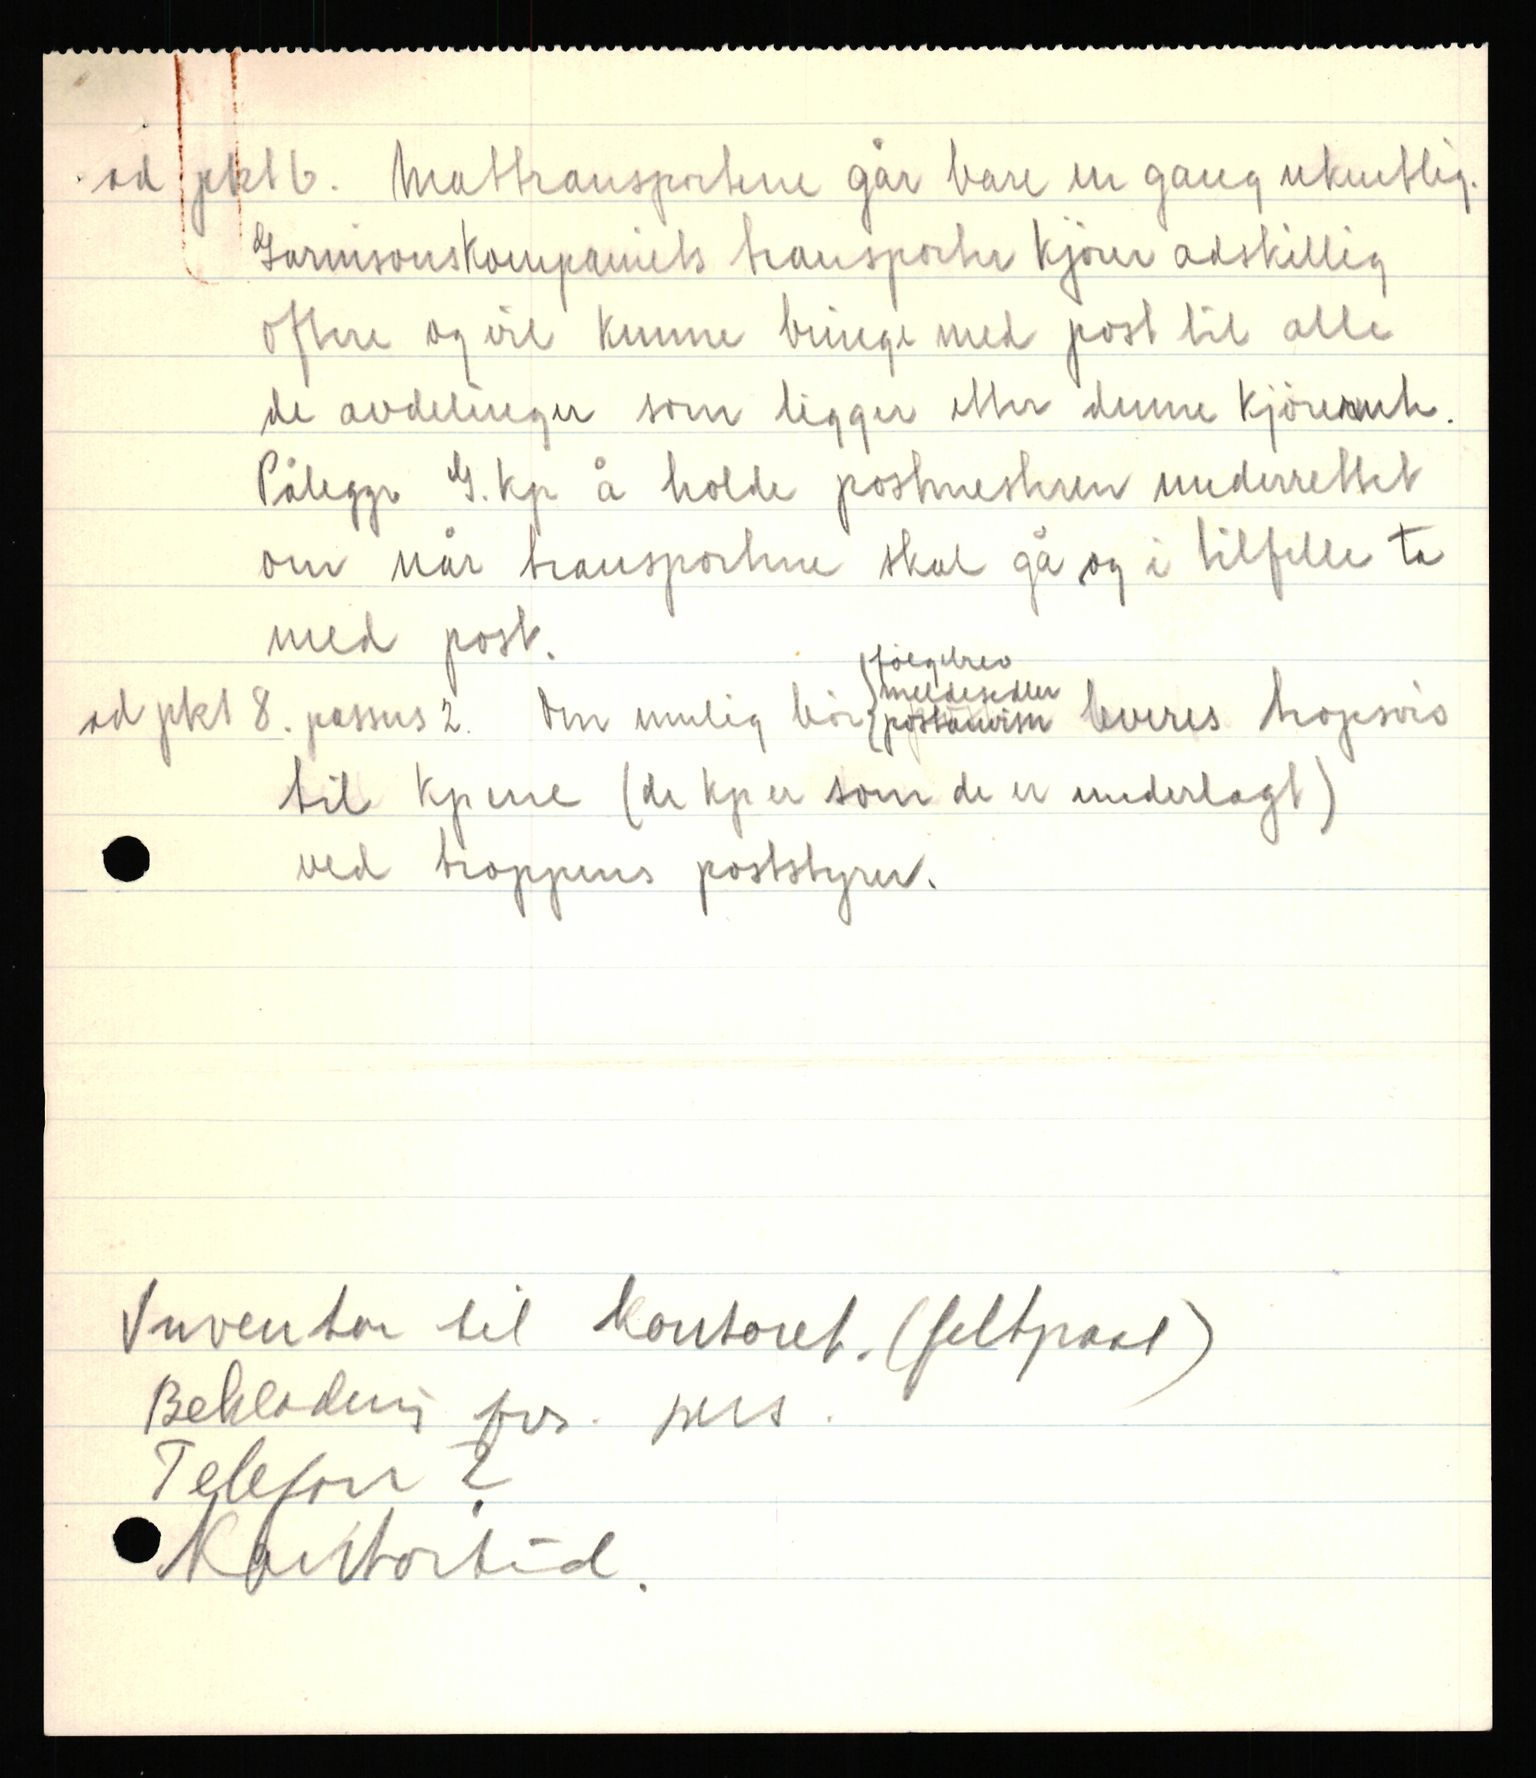 ad pkt 6. Mattransportene går bare en gang ukentlig.
Garnisonskompaniets transporter kjörer adskillig
oftere og vil kunne bringe med post til alle
de avdelinger som ligger etter denne kjörerute.
Pålegge G.kp å holde postmesteren underrettet
om når transportene skal gå og i tilfelle ta
med post.
fölgebrev
meldesedler
ad pkt 8. passus 2. Om mulig bör postanvisn leveres tropsvis
til kpene (de kper som de er underlagt)
ved troppens poststyrer.
Inventar til kontoret. (feltpost)
Bekledning for. pers.
Telefon ?
Kontortid.